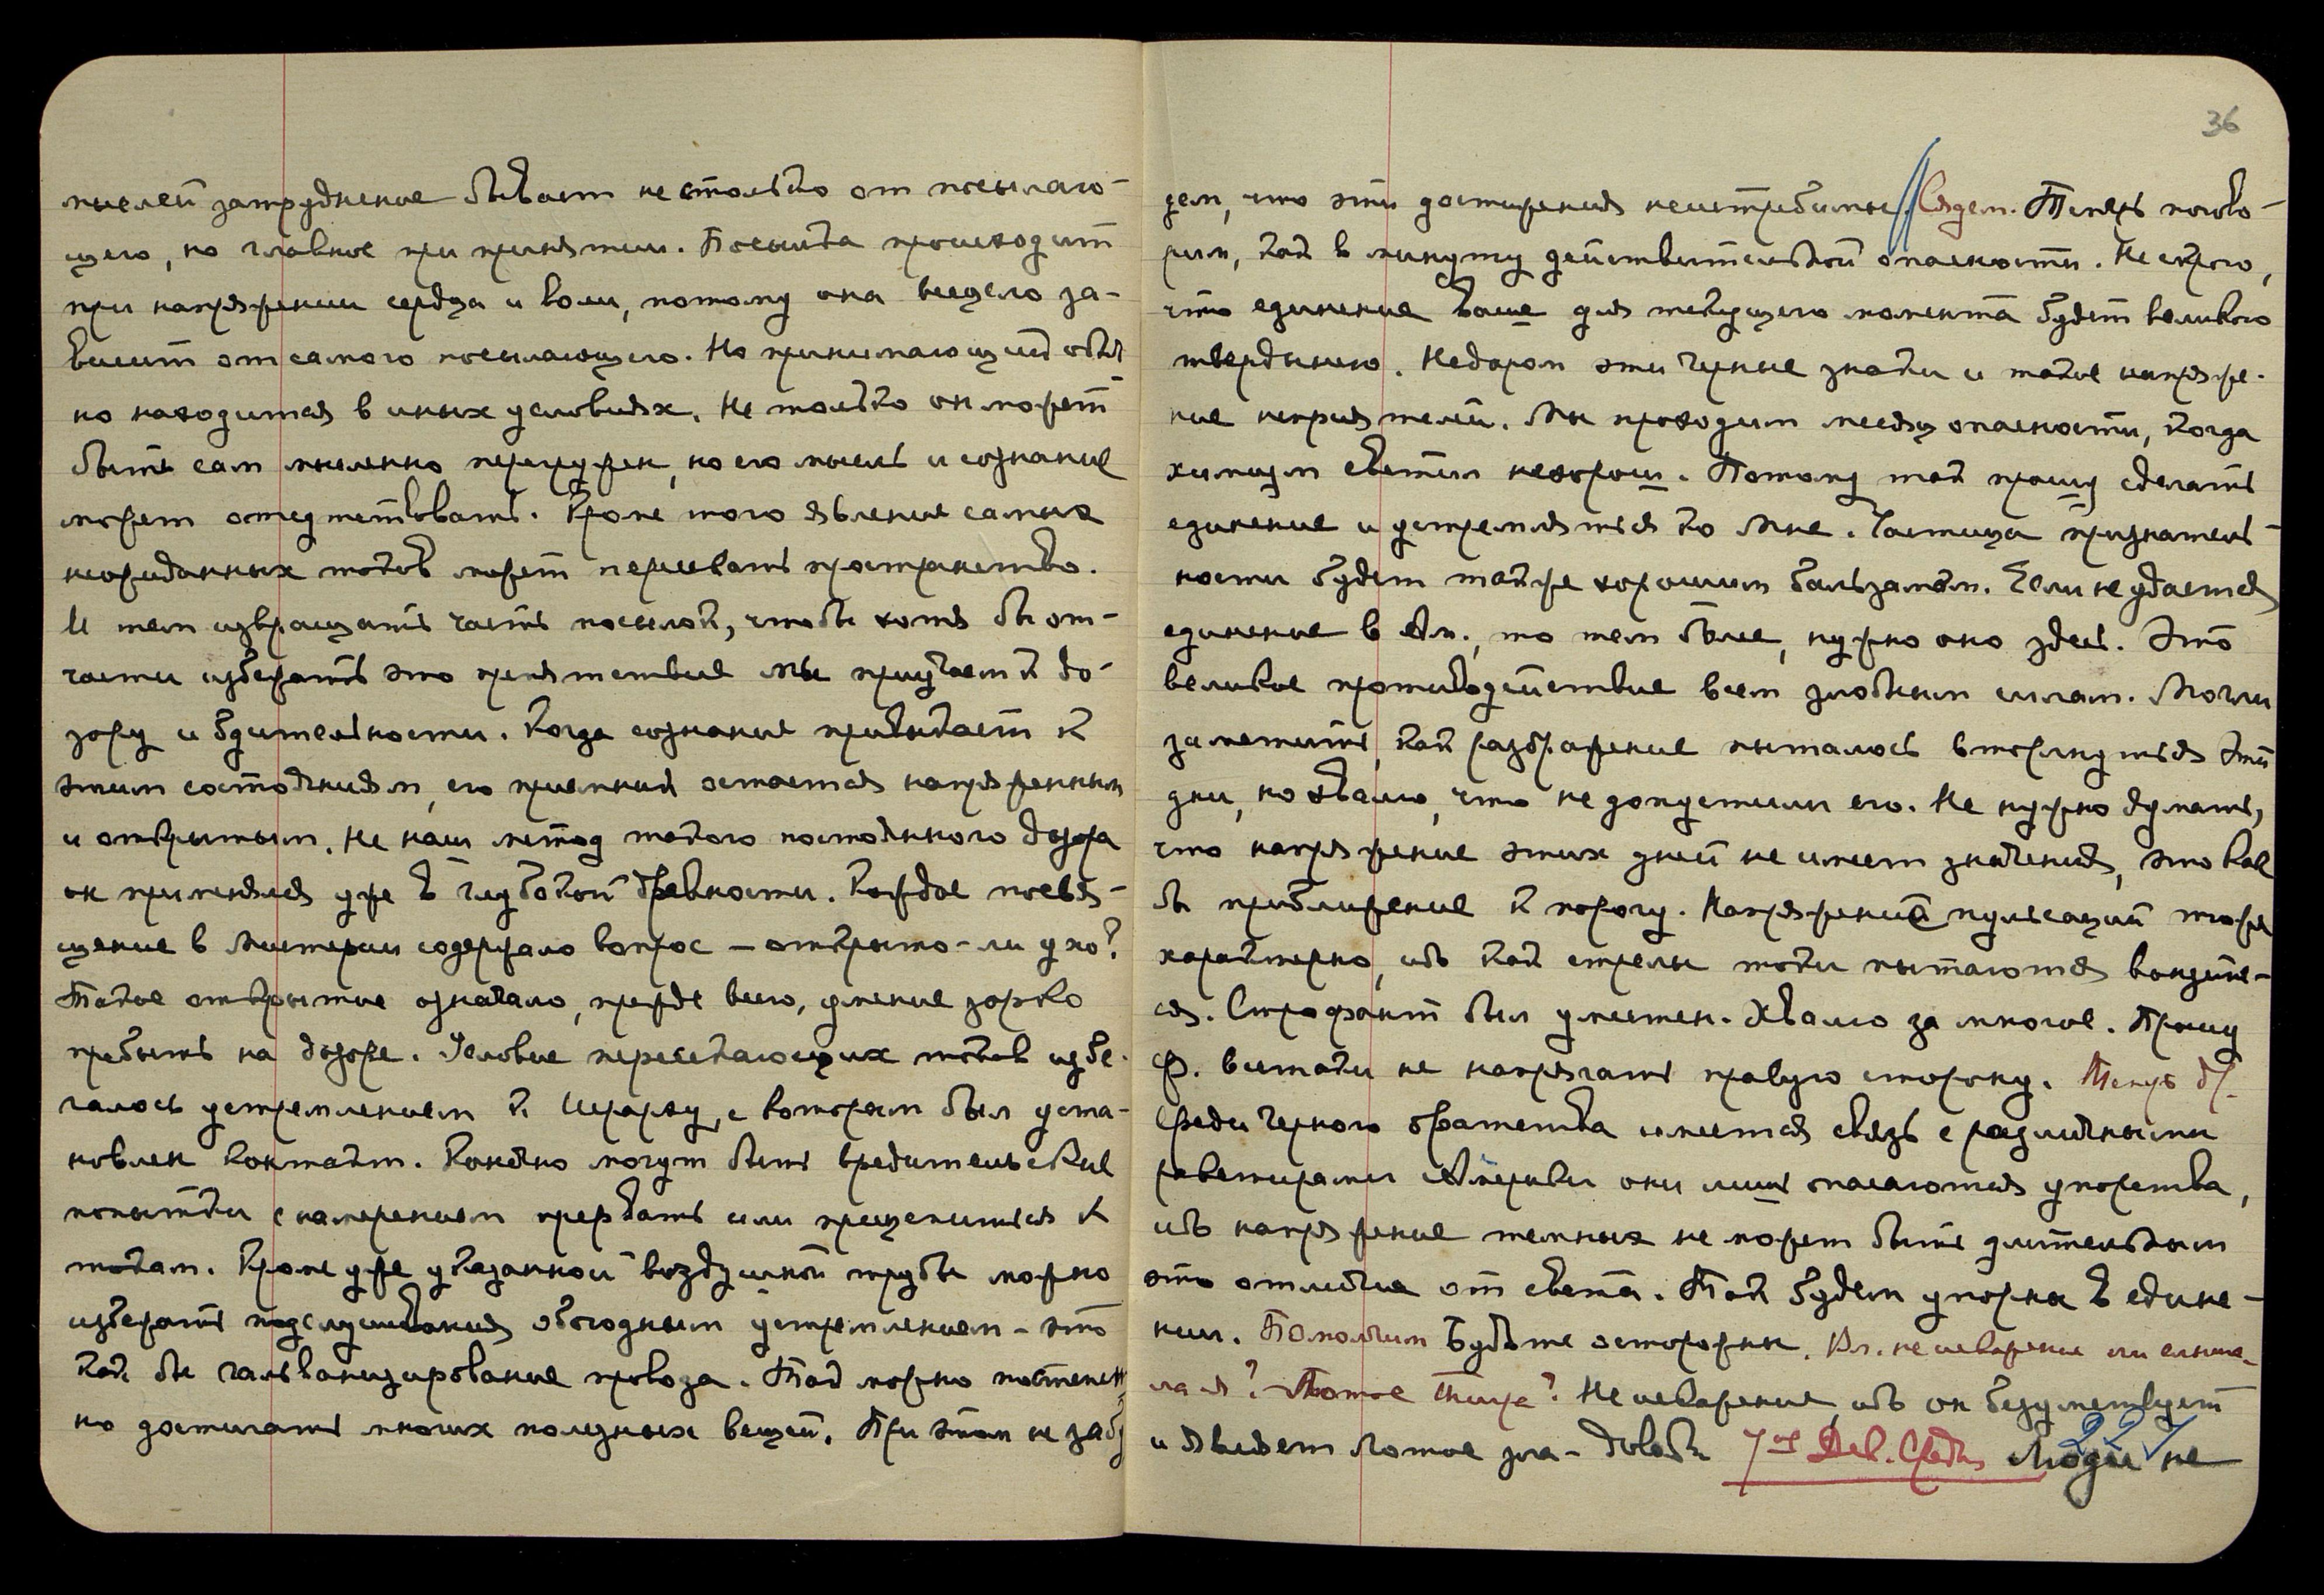 мыслей затруднение бывает не столько от посылаю-
щего, но главное при принятии. Посылка происходит
при напряжении сердца и воли, потому она всецело за-
висит от самого посылающего. Но принимающий обыч-
но находится в иных условиях. Не только он может
быть сам мысленно перегружен, но его мысль и сознание
может отсутствовать. Кроме того явление самых
неожиданных токов может пересекать пространство.
И тем извращать часть посылок, чтобы хотя бы от-
части избежать это препятствие мы приучаем к до-
зору и бдительности. Когда сознание привыкает к
этим состояниям, его приемник остается напряженным
и открытым. Не наш метод такого постоянного дозора
он применялся уже в глубокой древности. Каждое посвя-
щение в мистерии содержало вопрос — открыто-ли ухо?
Такое открытие означало, прежде всего, умение зорко
пребыть на дозоре. Условие пересекающих токов избе-
галось устремлением к Иерарху, с которым был уста-
новлен контакт. Конечно могут быть вредительские
попытки с намерением прервать или прицепиться к
токам. Кроме уже указанной воздушной трубы можно
избежать подслушивания обоюдным устремлением — это
как бы гальванизирование провода. Так можно постепен-
но достигать многих полезных вещей. При этом не забу
36
дем, что эти достижения неистребимы. Сядем. Теперь погово-
рим, как в минуту действительной опасности. Не скрою,
что единение ваше для текущего момента будет великою
твердынею. Недаром эти черные знаки и такое напряже-
ние неприятелей. Мы проходим между опасности, когда
химизм светил нехорош. Потому так прошу сделать
единение и устремляться ко Мне. Частица признатель-
ности будет также хорошим бальзамом. Если не удается
единение в Ам., то тем более, нужно оно здесь. Это
великое противодействие всем злобным силам. Могли
заметить, как раздражение пыталось вторгнуться эти
дни, но хвалю, что не допустили его. Не нужно думать,
что напряжение этих дней не имеет значения, это как
бы приближение к порогу. Напряжений пульсаций тоже
характерно, ибо как стрелы токи пытаются вонзить-
ся. Строфант был уместен. Хвалю за многое. Прошу
Ф. все-таки не напрягать правую сторону.
Среди Черного братства имеется связь с различными
Америки они лишь опасаются упорства,
ибо напряжение темных не может быть длительным
это отличие от света. Так будем упорны в едине-
нии. Помолчим Будьте осторожны. Вл. не испарение ли слыша-
ла я? Не испарение, ибо он безумствует
и являет 7ое Дек. Среда 22 Люди не